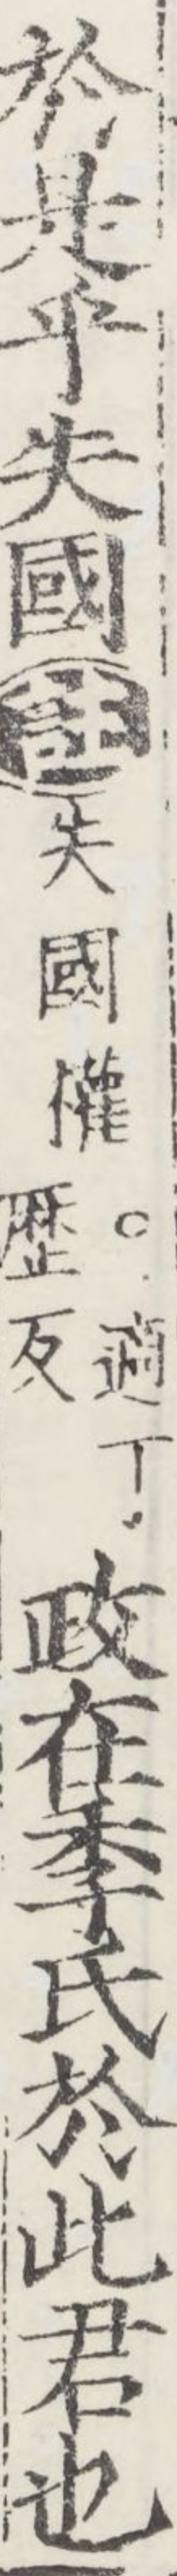 於是乎失國註失國權○適丁歷反政在季氏於此君也